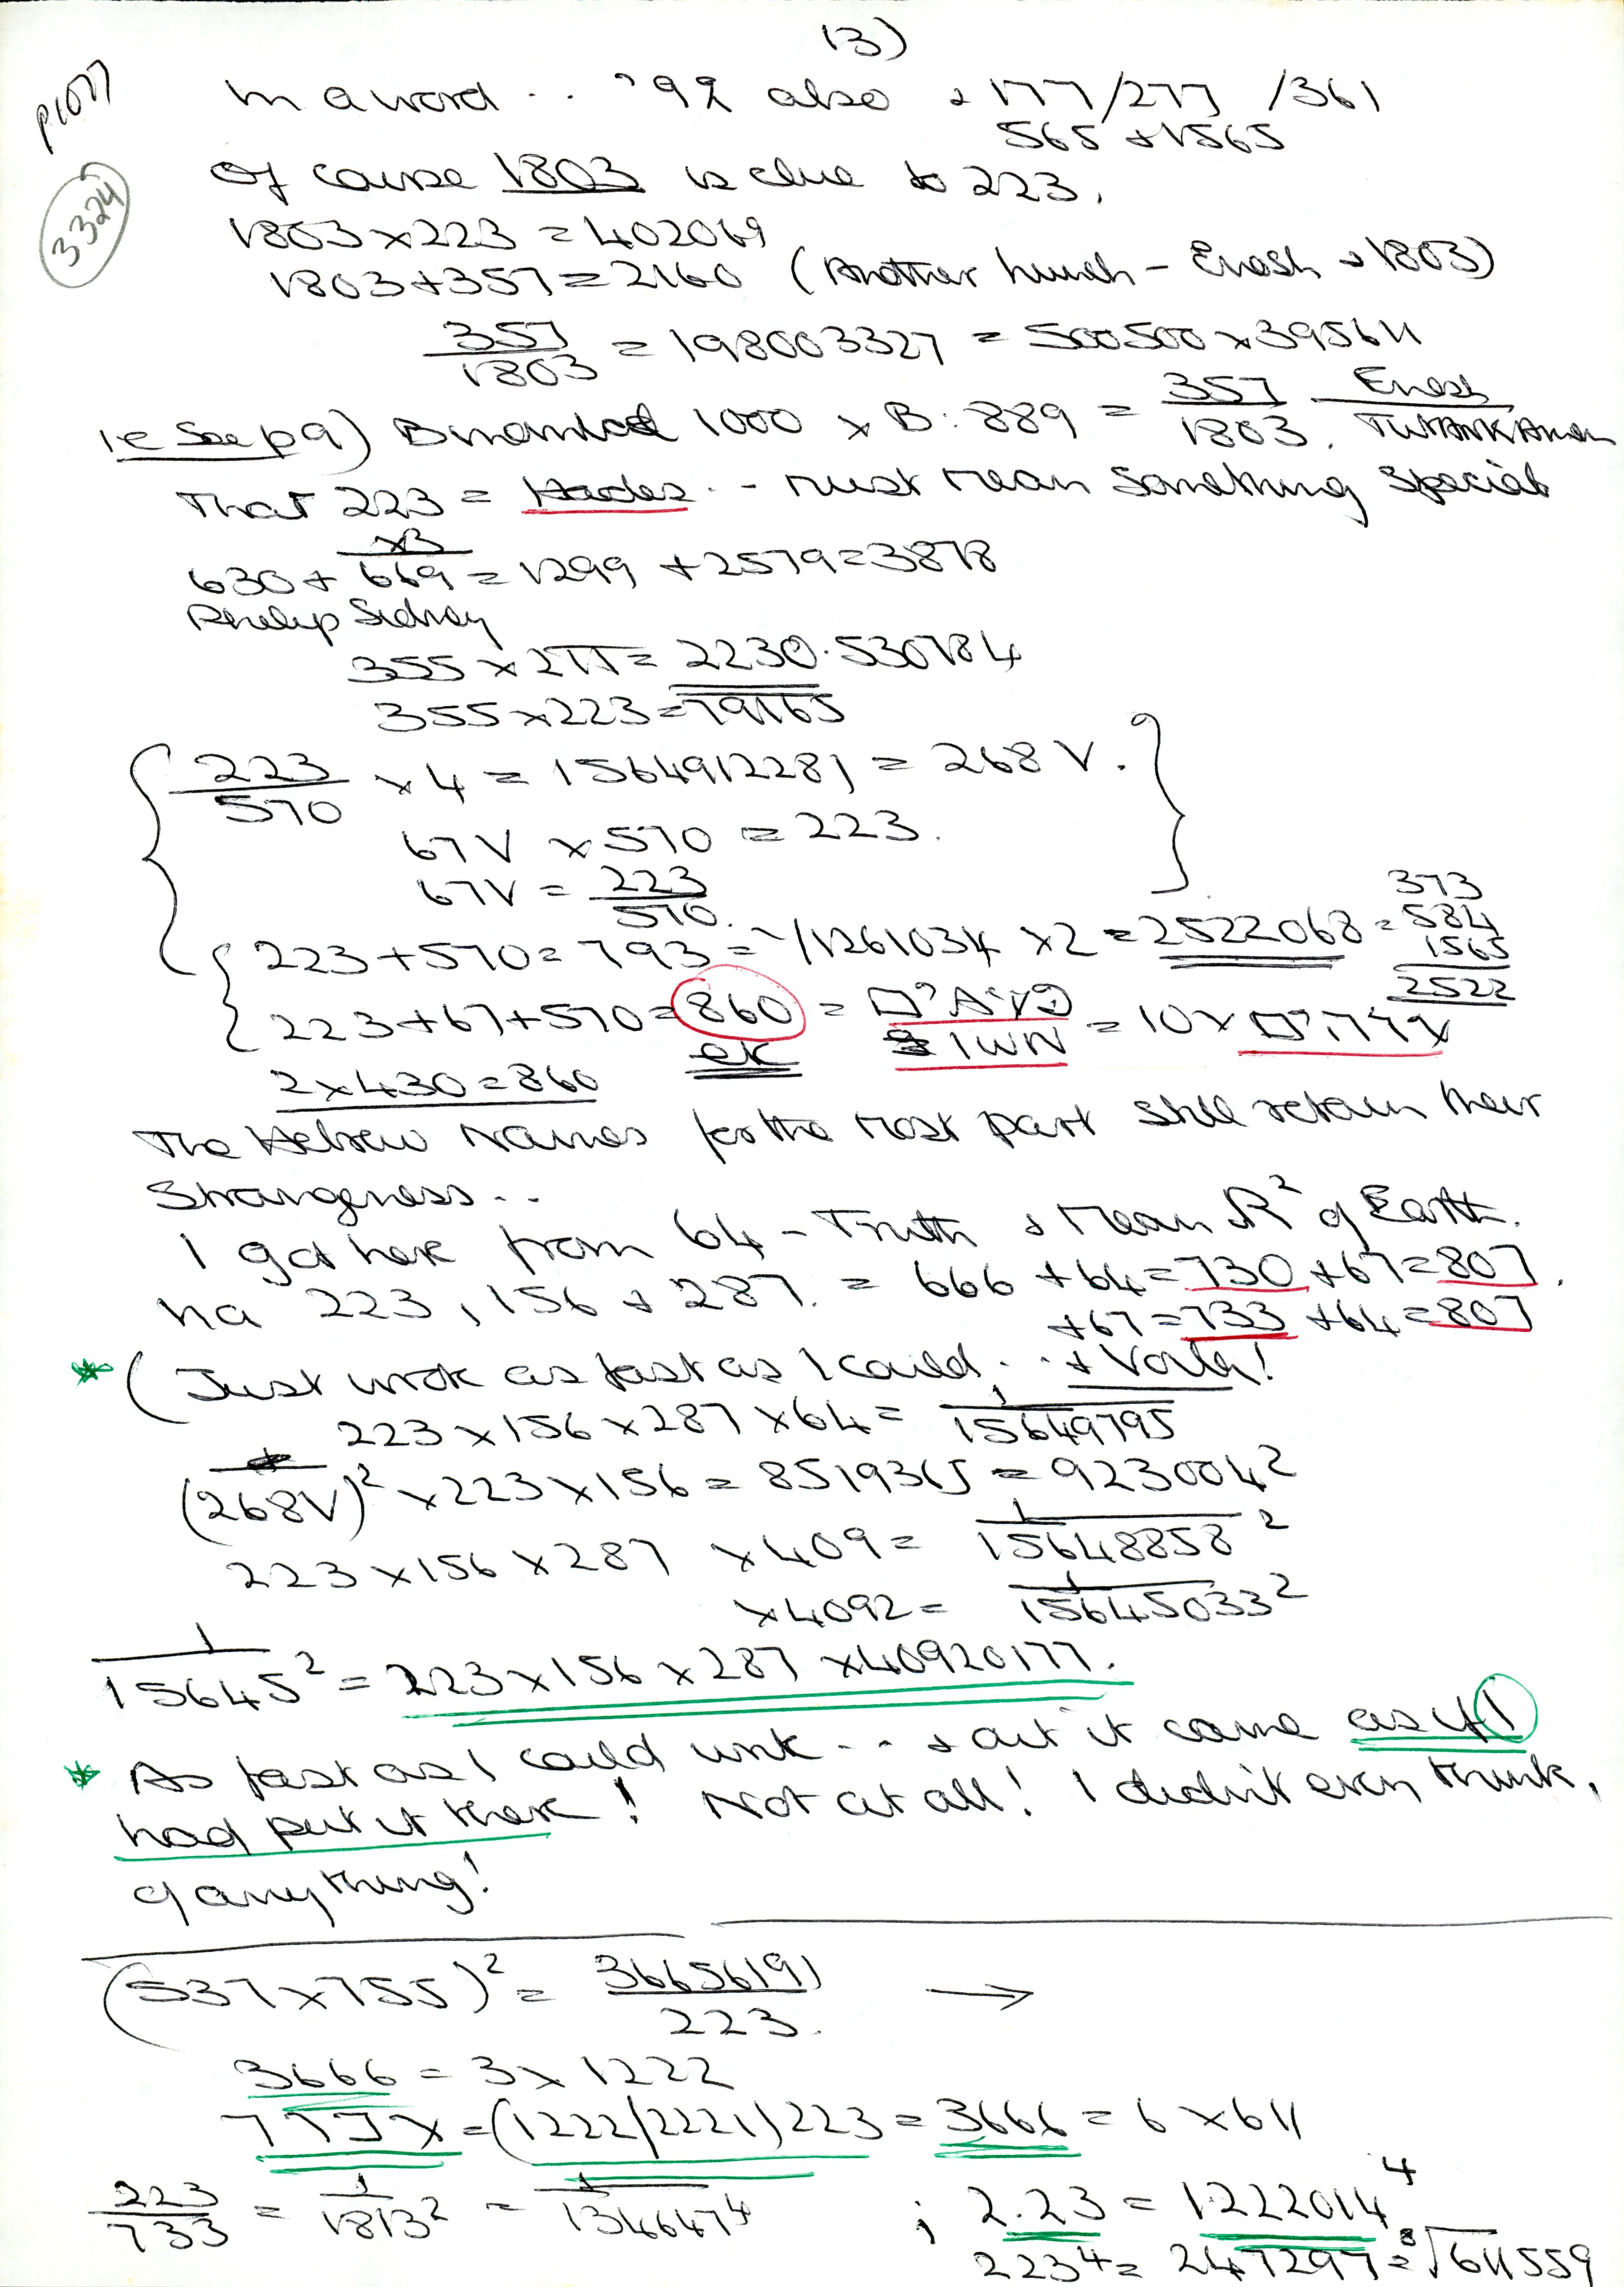 13)
p1077
3324
In a word .. '92 also & 177/277 /361
565 & 1565
Of course 1803 is clue to 223.
1803 x 223 = 402069
1803 + 357 = 2160 (Another hunch - Enosh & 1803)
357/1803 = 198003327 = 500500 x 395611
i.e See p9) Binomial 1000 x B: 889 = 357/1803. Enosh/TUTANKAmen
That 223 = Hades .. must mean something special
x3
630 + 669 = 1299 + 2579 = 3878
Philip Sidney
355 x 2π = 2230.530784
355 x 223 = 79165
223/570 x 4 = 1564912281 = 268 V.
67 V x 570 = 223.
67 V = 223/570.
223 + 570 = 793 = 1/1261034 x 2 = 2522068 = 373
584
1565
2522
223 + 67 + 570 = 860 = = 10 x
ek
2 x 430 = 860
The Hebrew Names for the most part still retain their
Strangeness ..
I got here from 64 - Truth & mean R² of Earth.
ha 223, 156 & 287. = 666 + 64 = 730 + 67 = 807.
+ 67 = 733 + 64 = 807
* (Just work as fast as I could .. & Voila!
223 x 156 x 287 x 64 = 1/15649795
(268V)² x 223 x 156 = 8519365 = 923004²
223 x 156 x 287 x 409 = 1/15648858²
x 4092 = 1/15645033²
1/15645² = 223 x 156 x 287 x 40920177.
* As fast as I could work ... & out it came as if I
had put it there! Not at all! I didn't even think,
of anything!
(537 x 755)² = 36656191/223. →
3666 = 3 x 1222
777 x = (1222/2221) 223 = 3666 = 6 x 611
223/733 = 1/1813² = 1/134647⁴ ; 2.23 = 1.222014⁴
223⁴ = 247297 = ⁸√611559